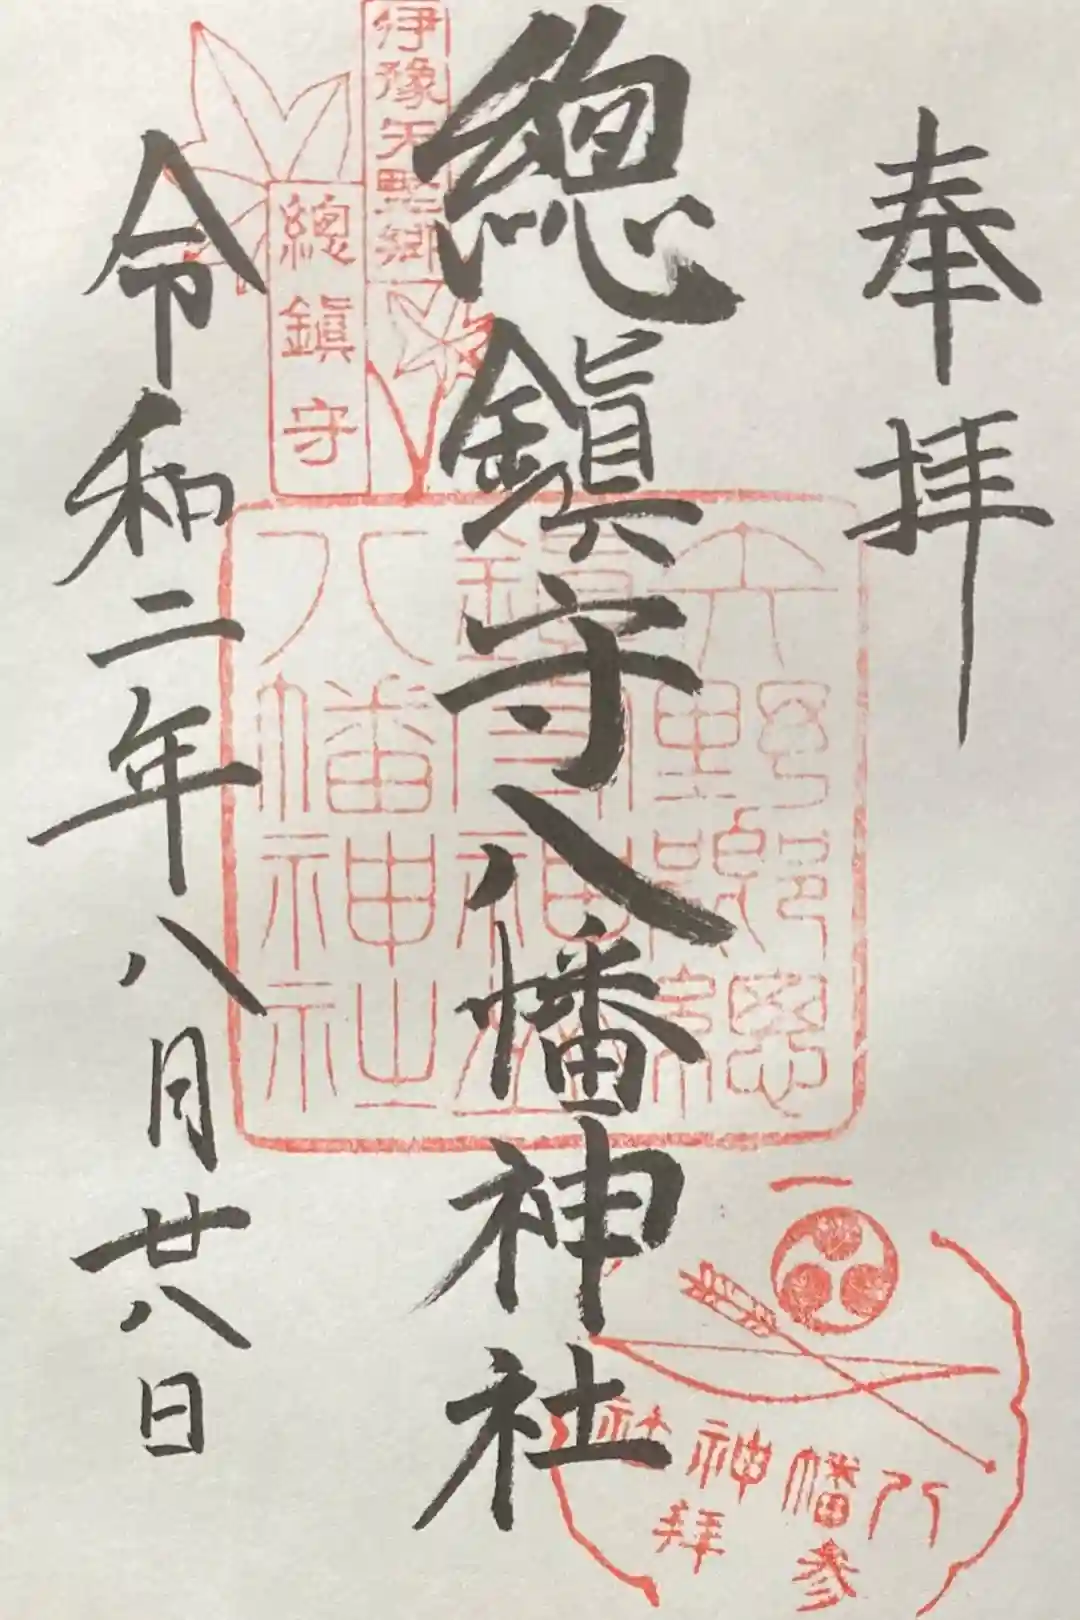 奉拝
總鎮守八幡神社
令和二年八月廿八日
伊豫矢野郷
總鎮守
八幡神社
八幡神社
参拝